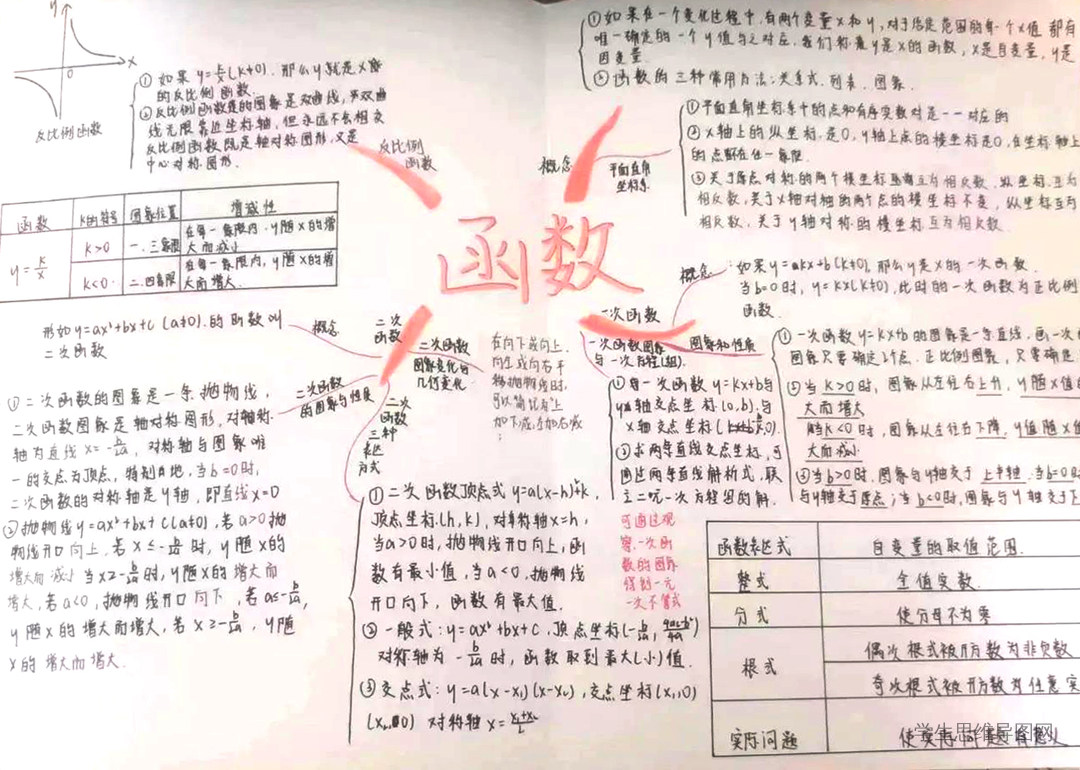 y
x
0
反比例函数
①如果y=k/x(k≠0),那么y就是x的
的反比例函数.
②反比例函数的图象是双曲线,
线无限靠近坐标轴,但永远不会相交
反比例函数既是轴对称图形,又是
中心对称图形.
反比例
函数
函数 k的符号 图象位置 增减性
y=k/x
k>0 一.三象限 在每一象限内,y随x的增
大而减小
k<0 二.四象限 在每一象限内,y随x的增
大而增大.
①如果在一个变化过程中,有两个变量x和y,对于给定范围的每一个x值 都有
唯一确定的一个y值与之对应,我们称y是x的函数,x是自变量,y是
因变量.
②函数的三种常用方法:关系式.列表.图象.
概念
平面直角
坐标系
①平面直角坐标系中的点和有序实数对是一一对应的
②x轴上的纵坐标是0,y轴上点的横坐标是0,在坐标轴上
的点
③关于原点对称的两个横坐标互为相反数,纵坐标互为
相反数,关于x轴对称的两个点的横坐标不变,纵坐标互为
相反数,关于y轴对称的横坐标互为相反数.
函数
一次函数
概念
如果y=akx+b(k≠0),那么y是x的一次函数.
当b=0时,y=kx(k≠0),此时的一次函数为正比例
函数.
图象和性质
①一次函数y=kx+b的图象是一条直线,画一次
图象只要确定2个点.正比例图象,只需确定
②当k>0时,图象从左往右上升,y随x值
大而增大
当k<0时,图象从左往右下降,y值随x值
大而减小.
③当b>0时,图象与y轴交于上半轴.当b=0时
与y轴交于原点;当b<0时,图象与y轴交于下
一次函数图象
与一次方程(组).
①每一次函数y=kx+b与
y轴交点坐标(0,b),与
x轴交点坐标
②求两条直线交点坐标,可
通过两条直线解析式,联
立二元一次方程组的解.
可通过观
察,一次函
数的图象
得到一元
一次不等式
二次
函数
概念
形如y=ax²+bx+c(a≠0).的函数叫
二次函数
二次函数
图象变化的
几何变化.
在向下或向上,
向左或向右平
移抛物线时,
可以简记为"上
加下减,左加右减
;
二次函数
的图象与性质
①二次函数的图象是一条抛物线,
二次函数图象是轴对称图形,对称
轴为直线x=-b/2a,对称轴与图象唯
一的交点为顶点,特别地,当b=0时,
二次函数的对称轴是y轴,即直线x=0
②抛物线y=ax²+bx+c(a≠0),若a>0抛
物线开口向上,若x≤-b/2a时,y随x的
增大而减小 当x≥-b/2a时,y随x的增大而
增大,若a<0,抛物线开口向下,若a≤-b/2a,
y随x的增大而增大,若x≥-b/2a,y随
x的增大而增大.
二次
函数
三种
表达
方式
①二次函数顶点式y=a(x-h)²+k,
顶点坐标(h,k),对称轴x=h,
当a>0时,抛物线开口向上,函
数有最小值,当a<0,抛物线
开口向下,函数有最大值.
②一般式:y=ax²+bx+c,顶点坐标(-b/2a,4ac-b²/4a)
对称轴为-b/2a时,函数取到最大(小)值.
③交点式:y=a(x-x₁)(x-x₂),交点坐标(x₁,0)
(x₂,0) 对称轴x=x₁+x₂/2
函数表达式 自变量的取值范围.
整式 全值实数.
分式 使分母不为零
根式 偶次根式被开方数为非负数
奇次根式被开方数为任意实
实际问题 使实际问题有意义
学生思维导图网